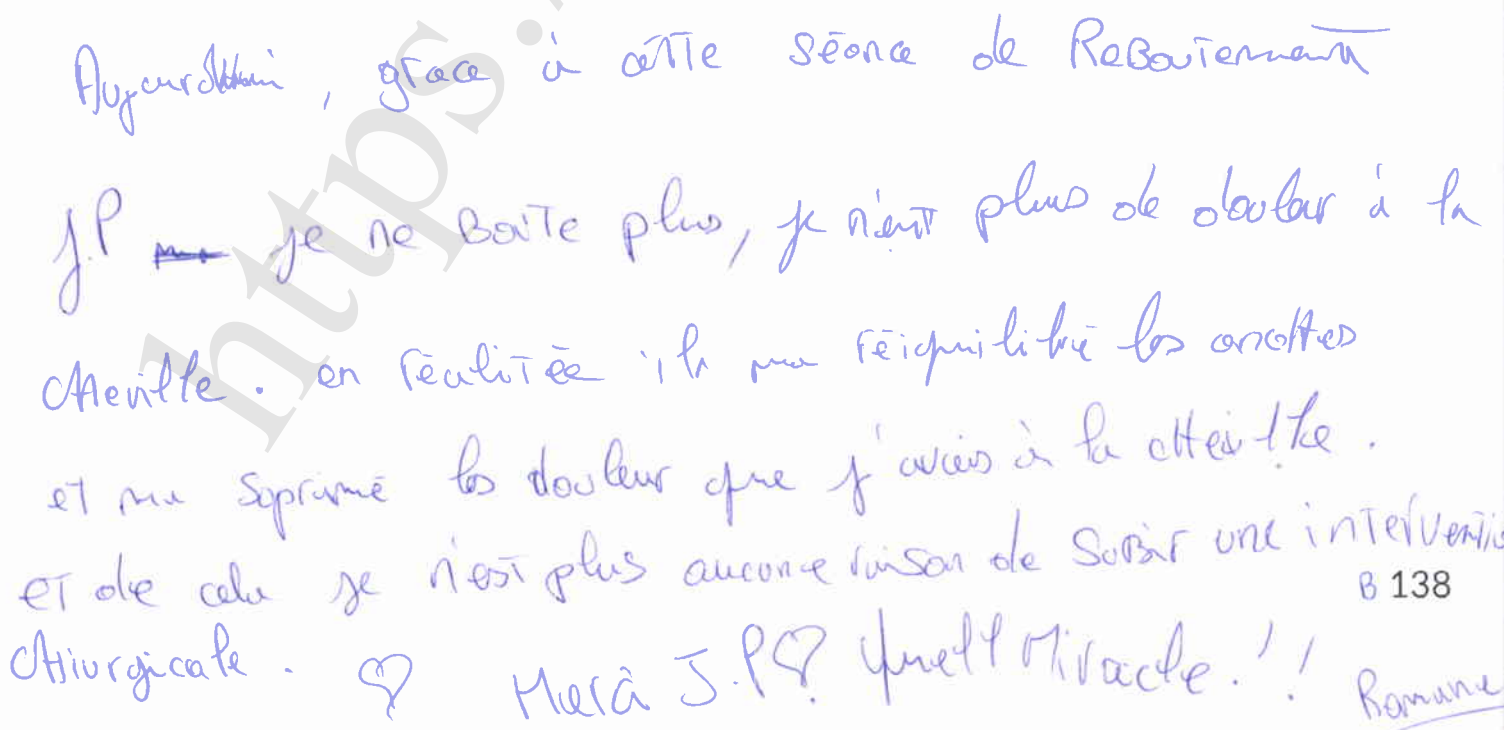 Aujourdhui, grace à cette séance de Reboutement
J.P je ne Boite plus, je n'ent plus de douleur à la
cheville. en réalitée il ma réiquilibré les
et ma soprimé les douleur que j'avais à la cheville.
et de cela je n'est plus aucune raison de Subir une interventio
B 138
chiurgicale. ♡ Merci J.P♡ quell Miracle.!!
https: